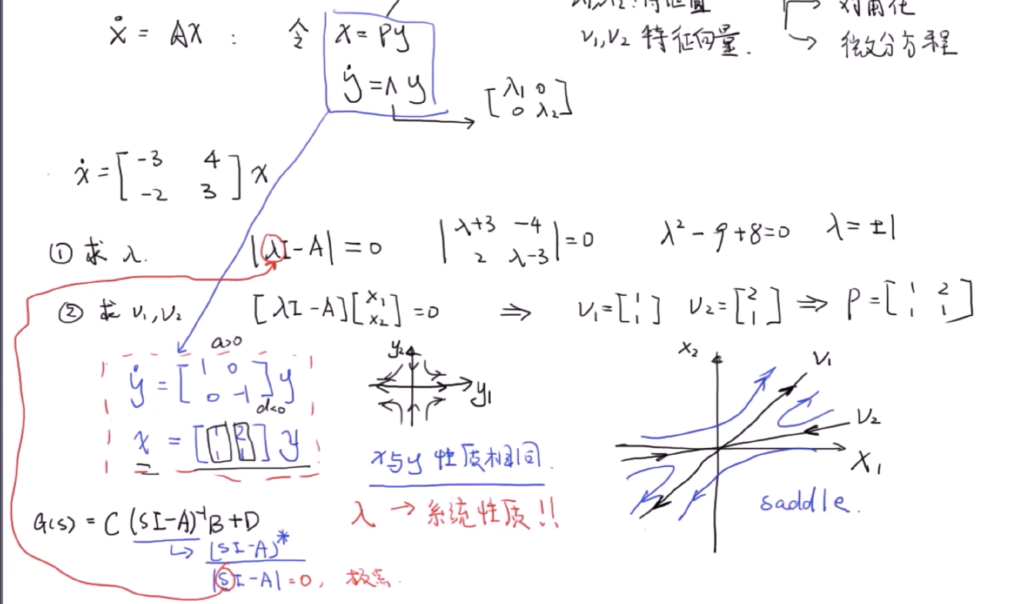 ẋ = AX : 令 X = Py
ẏ = Λ y
[λ₁ 0
0 λ₂]
特征值
v₁,v₂ 特征向量.
对角化
微分方程
ẋ = [-3 4
-2 3] X
① 求 λ. |λI-A| = 0 |λ+3 -4
2 λ-3| = 0 λ² - 9 + 8 = 0 λ = ±1
② 求 v₁,v₂ [λI-A][x₁
x₂] = 0 ⇒ v₁ = [1
1] v₂ = [2
1] ⇒ P = [1 2
1 1]
a>0
ẏ = [1 0
0 -1] y
d<0
x = [1 2
1 1] y
y₂
y₁
x与y 性质相同.
λ → 系统性质!!
X₂
V₁
V₂
X₁
saddle.
G(s) = C (SI-A)⁻¹B+D
↳ (SI-A)*
|SI-A| = 0, 极点.